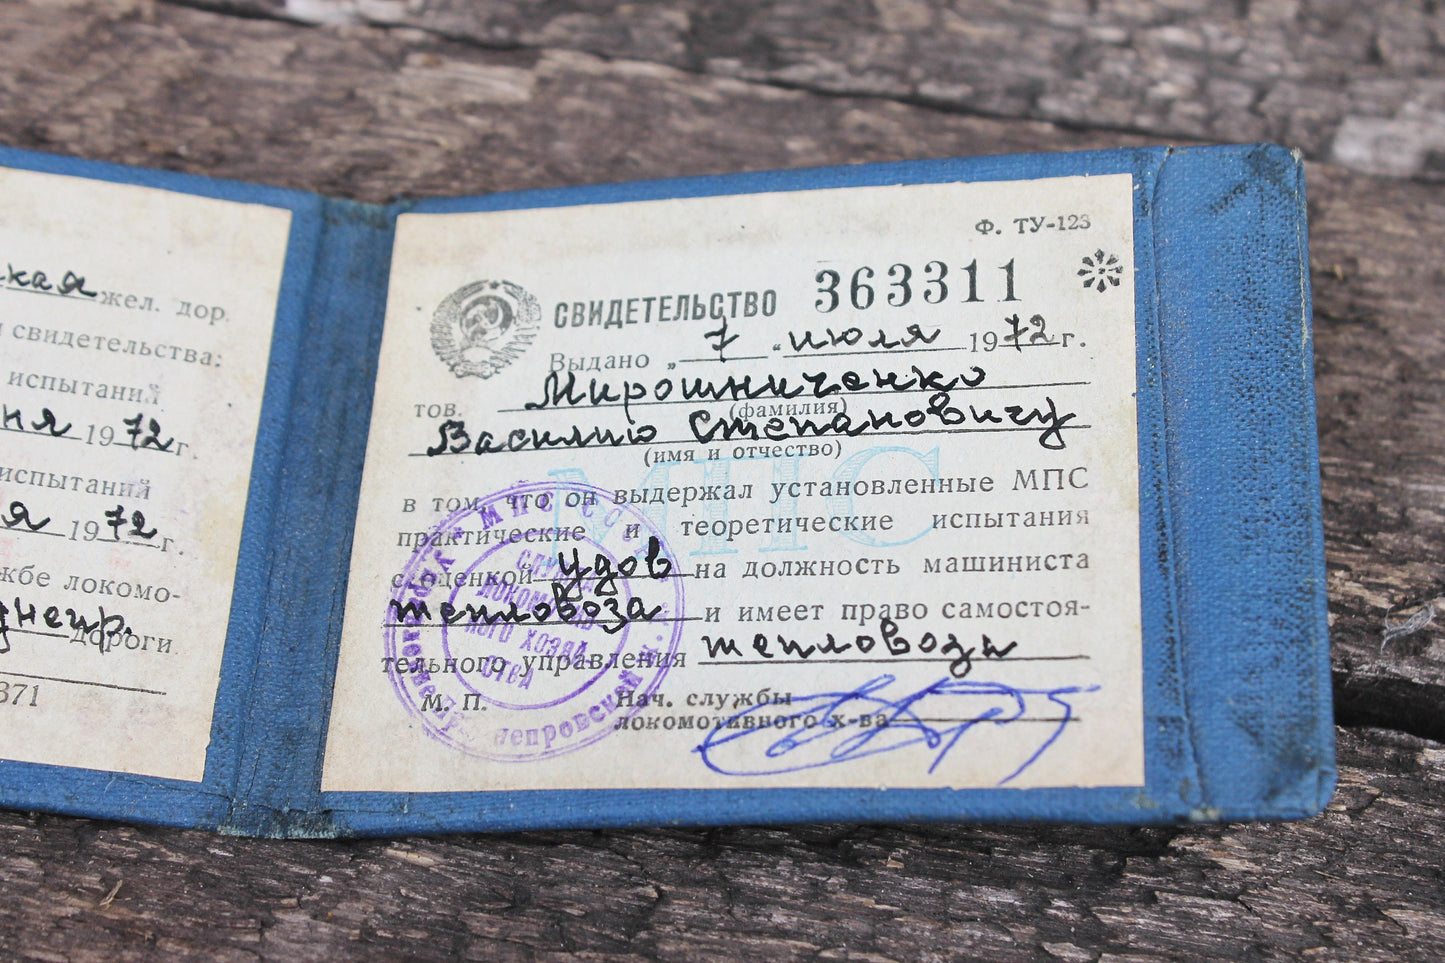 кая жел. дор.
свидетельства:
испытаний
ня 1972 г.
испытаний
я 1972 г.
жбе локомо-
днепр. дороги
371
Ф. ТУ-123
СВИДЕТЕЛЬСТВО 363311
Выдано „ 7 " июля 1972 г.
тов. Мирошниченко
(фамилия)
Василию Степановичу
(имя и отчество)
МПС
в том, что он выдержал установленные МПС
практические и теоретические испытания
с оценкой удов на должность машиниста
тепловоза и имеет право самостоя-
тельного управления тепловоза
М. П. Нач. службы
локомотивного х-ва
МПС СССР
СЛУЖБА
ЛОКОМОТИВ
НОГО ХОЗЯЙ
СТВА